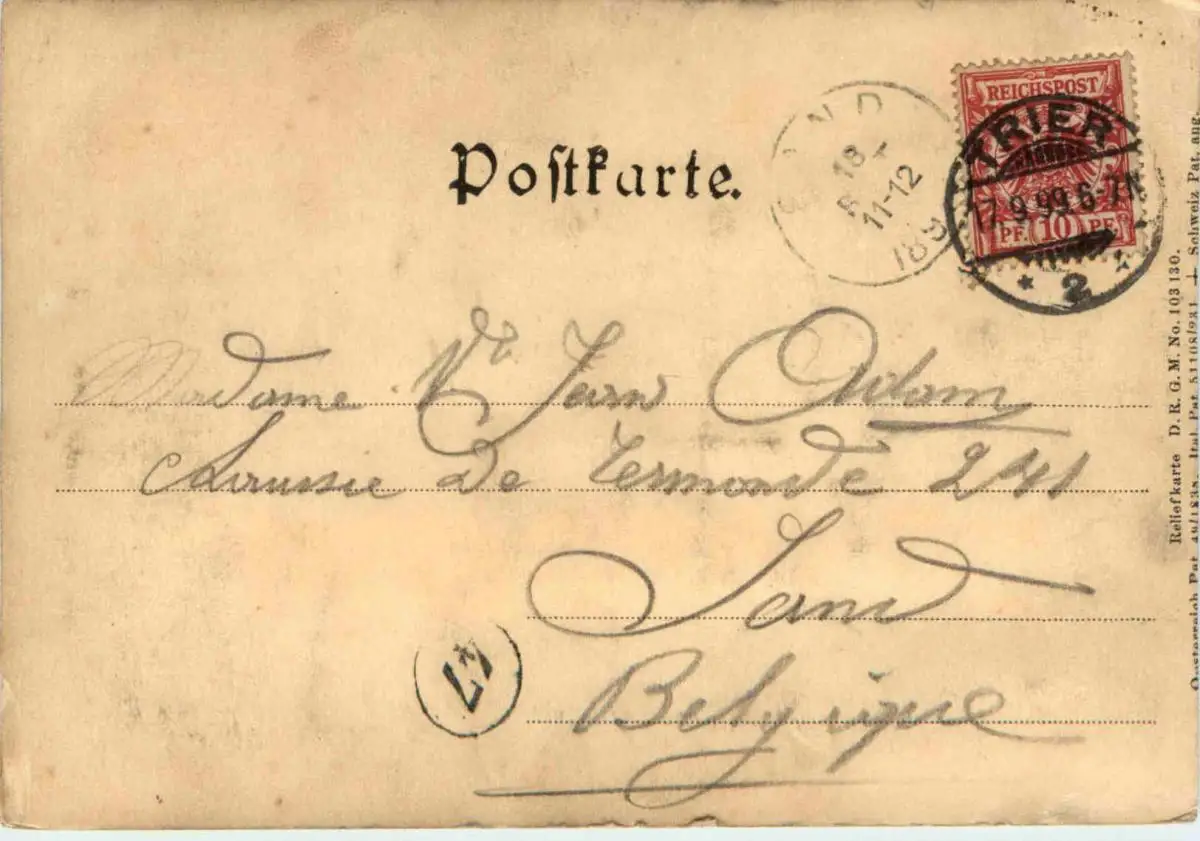 REICHSPOST
PF. 10 PF.
TRIER
17.9.99.6-7N
* 2 *
18
11-12
189
Postkarte.
Madame Ve Jean Adam
Chaussée de Termonde 241
Gand
Belgique
47
Reliefkarte D. R. G. M. No. 103 130.
Oesterreich Pat. 49/1838. Ital. Pat. 51108/931 + Schweiz Pat. ang.